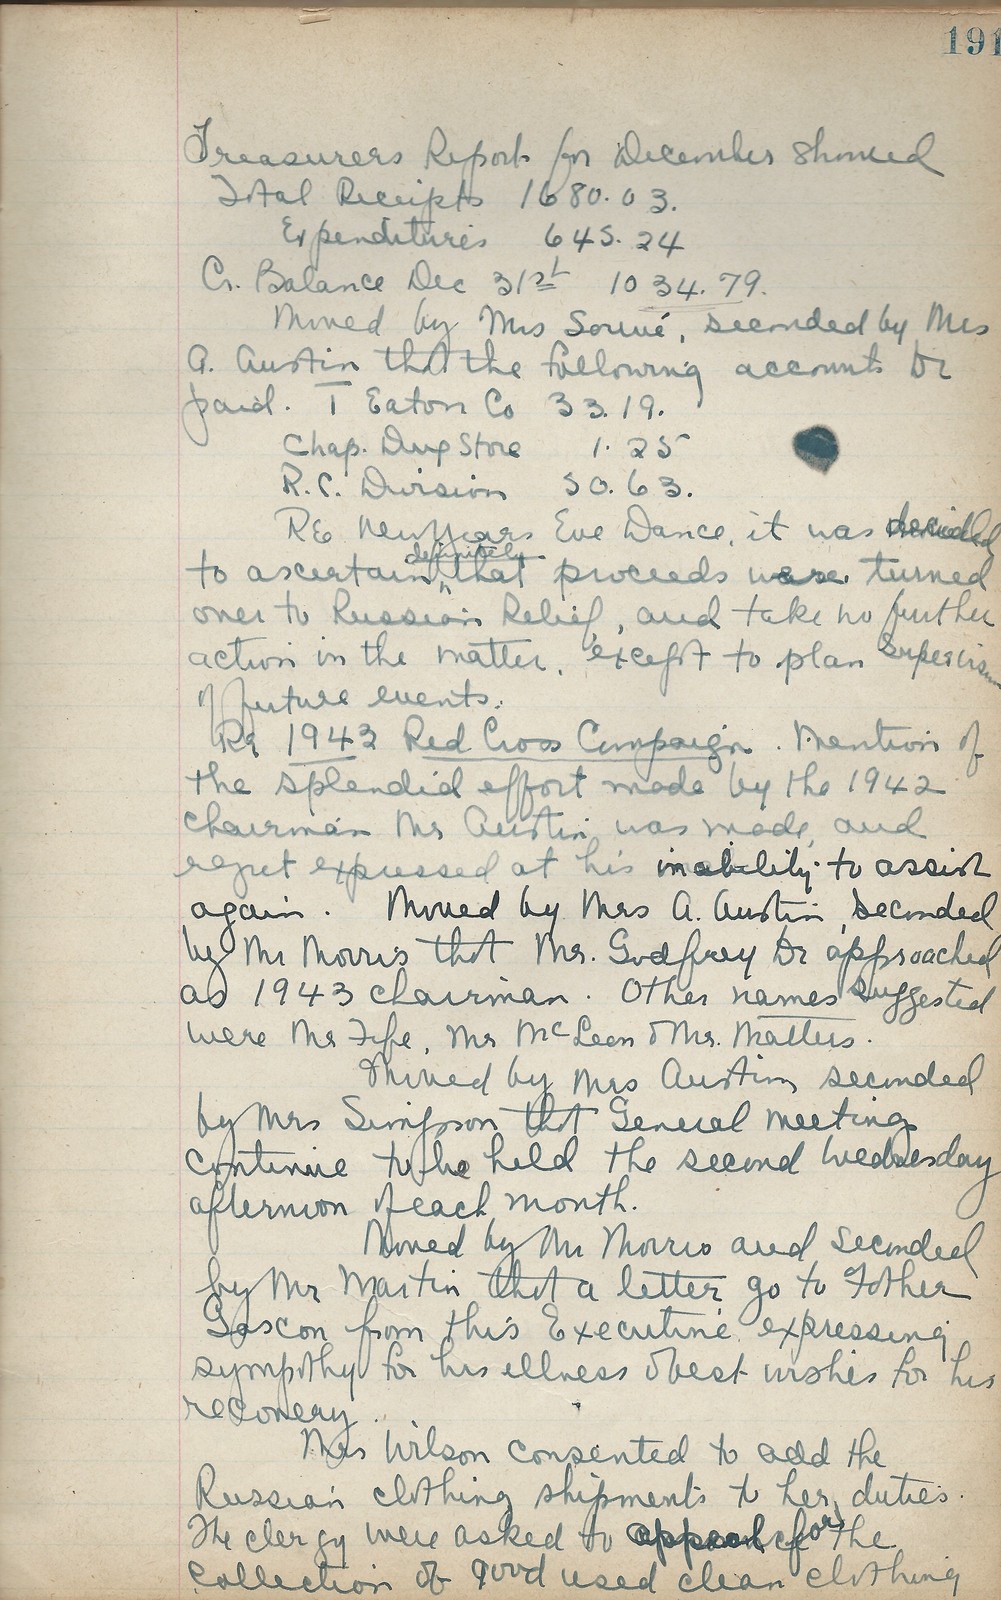 191
Treasurers Report for December showed
Total Receipts 1680.03.
Expenditures 645.24
Cr. Balance Dec 31st 1034.79.
Moved by Mrs Sauvé, seconded by Mrs
A. Austin that the following accounts be
paid. T Eaton Co 33.19.
Chap. Drug Store 1.25
R.C. Division 50.63.
Re New Years Eve Dance, it was decided
to ascertain definitely that proceeds were turned
over to Russian Relief, and take no further
action in the matter, except to plan supervision
of future events.
Re 1943 Red Cross Campaign. Mention of
the splendid effort made by the 1942
chairman Mr Austin, was made, and
regret expressed at his inability to assist
again. Moved by Mrs A. Austin, seconded
by Mr Morris that Mr. Godfrey be approached
as 1943 chairman. Other names suggested
were Mr Fife, Mr McLeon & Mr. Matters.
Moved by Mrs Austin seconded
by Mrs Simpson that General meetings
continue to be held the second Wednesday
afternoon of each month.
Moved by Mr Morris and seconded
by Mr Martin that a letter go to Father
Gascon from this Executive expressing
sympathy for his illness & best wishes for his
recovery.
Mrs Wilson consented to add the
Russian clothing shipments to her duties.
The clergy were asked to appeal for the
collection of good used clean clothing